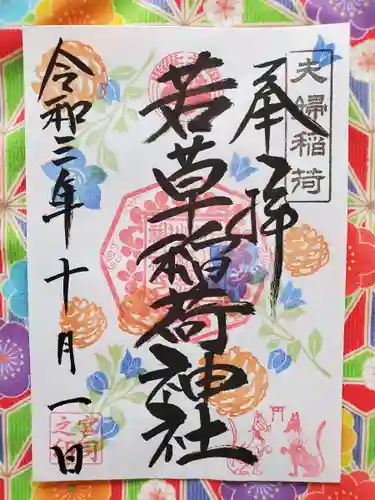 夫婦稲荷
奉拝
若草稲荷神社
令和三年十月一日
宮司之印